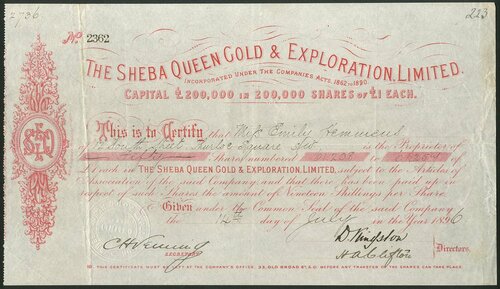 2736
223
No 2362
THE SHEBA QUEEN GOLD & EXPLORATION, LIMITED.
INCORPORATED UNDER THE COMPANIES ACTS, 1862 TO 1890.
CAPITAL £200,000 IN 200,000 SHARES OF £1 EACH.
This is to Certify that Miss Emily Clemmens
of South Street Thurloe Square SW is the Proprietor of
Fifty Shares numbered to
£1 each in THE SHEBA QUEEN GOLD & EXPLORATION, LIMITED, subject to the Articles of
Association of the said Company, and that there has been paid up in
respect of such Shares the amount of Nineteen Shillings per Share.
Given under the Common Seal of the said Company
the 14th day of July in the Year 1896
D. Kingston
Directors.
SECRETARY
THIS CERTIFICATE MUST BE LEFT AT THE COMPANY'S OFFICE, 33, OLD BROAD ST, E.C. BEFORE ANY TRANSFER OF THE SHARES CAN TAKE PLACE.